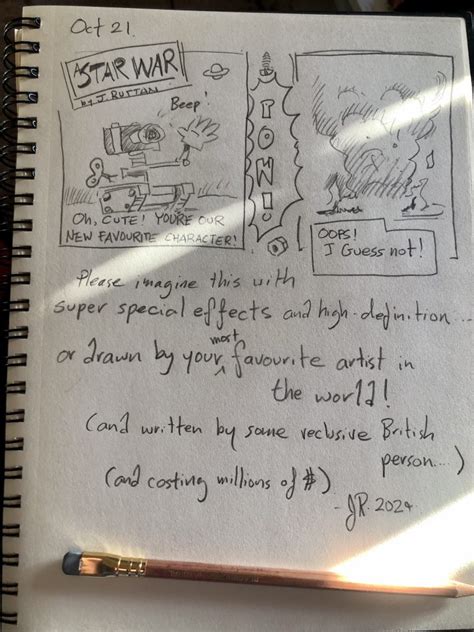 Oct 21.
A
STAR WAR
BY J. RUTTAN
Beep!
OH, CUTE! YOU'RE OUR
NEW FAVOURITE CHARACTER!
TOW!
OOPS!
I GUESS not!
Please imagine this with
super special effects and high-definition...
or drawn by your most favourite artist in
the world!
(and written by some reclusive British
person...)
(and costing millions of $)
- JR. 2024